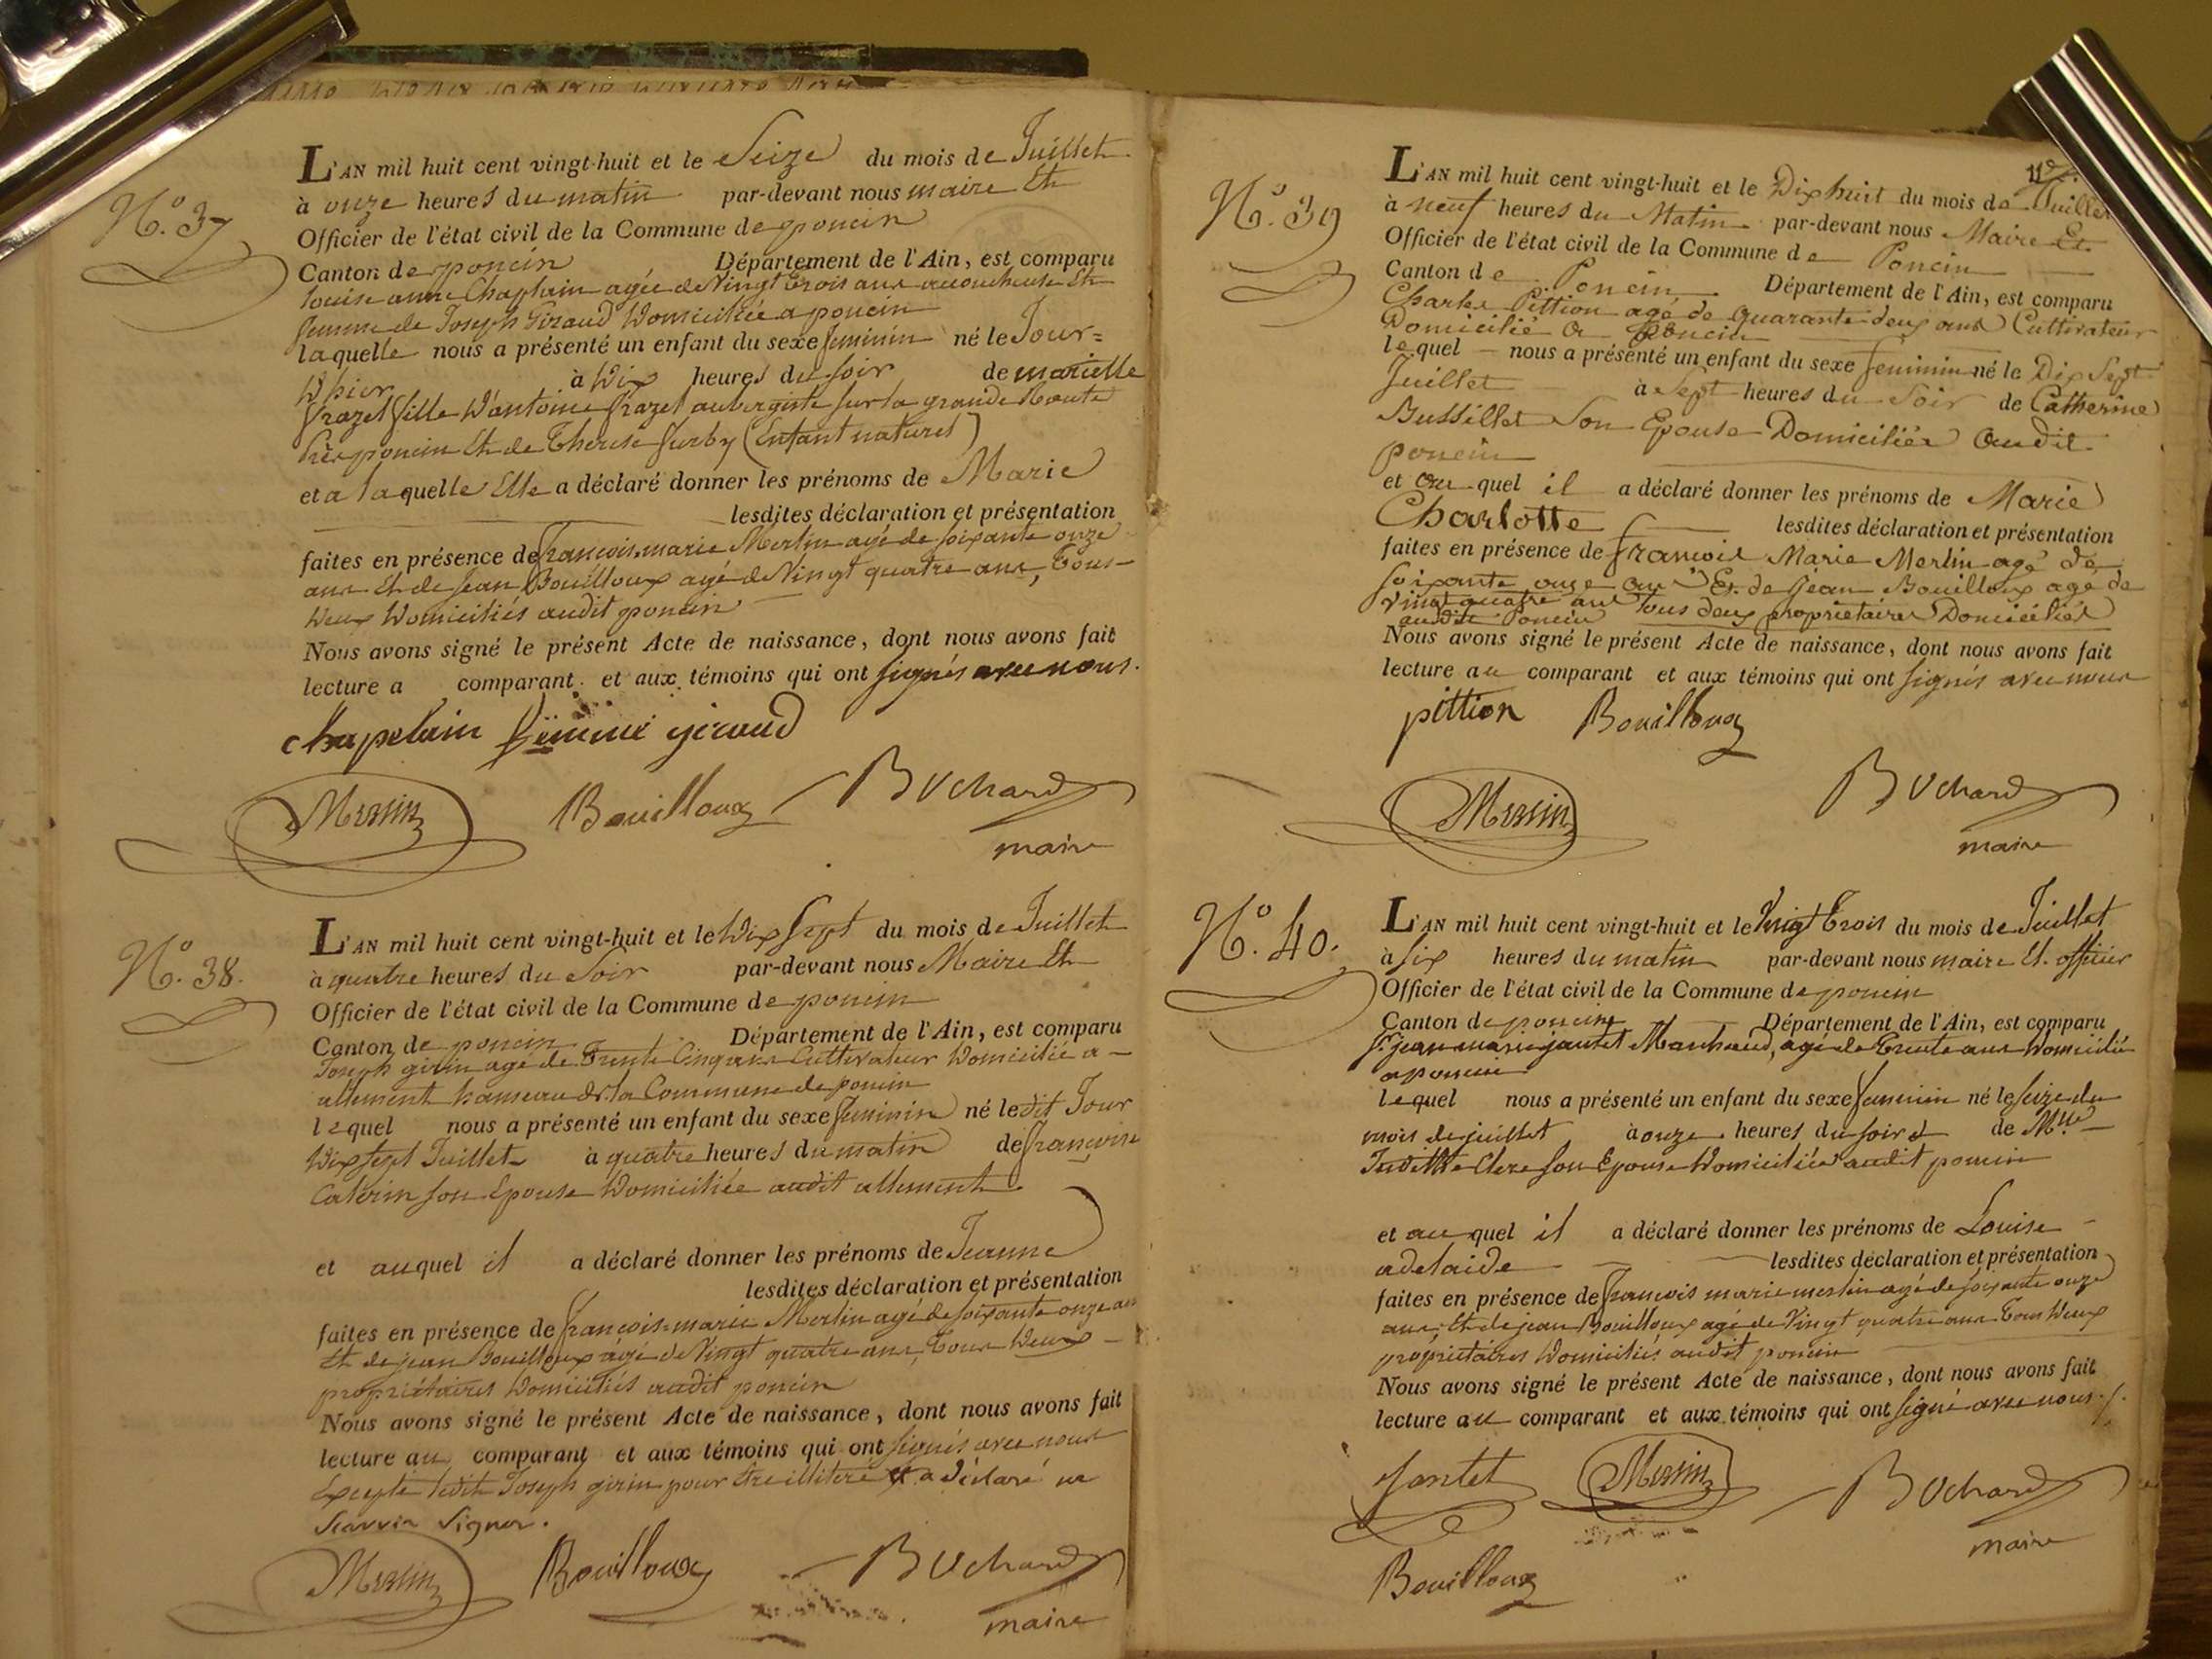 N.° 37
L'AN mil huit cent vingt-huit et le Seize du mois de Juillet
à onze heures du matin par-devant nous maire Et
Officier de l'état civil de la Commune de poncin
Canton de poncin Département de l'Ain, est comparu
louise anne Chaplain agée de Vingt Trois ans acoucheuse Et
femme de Joseph Giraud Domiciliée a poncin
laquelle nous a présenté un enfant du sexe feminin né le Jour=
D'hier à Dix heures du soir de mariette
frazet fille D'antoine frazet aubergiste sur la grande Route
Près poncin Et de Therese furby (Enfant naturel)
et a laquelle Elle a déclaré donner les prénoms de Marie
lesdites déclaration et présentation
faites en présence de francois marie Merlin agé de soixante onze
ans Et de Jean Bouilloux agé de Vingt quatre ans, Tous-
Deux Domiciliés audit poncin
Nous avons signé le présent Acte de naissance, dont nous avons fait
lecture a comparant et aux témoins qui ont signés avec nous.
chapelain femme giraud
Merlin Bouilloux BUchard
maire
N.° 38.
L'AN mil huit cent vingt-huit et le Dix Sept du mois de Juillet
à quatre heures du Soir par-devant nous Maire Et
Officier de l'état civil de la Commune de poncin
Canton de poncin Département de l'Ain, est comparu
Joseph girin agé de Trente Cinq ans Cultivateur Domicilié a
allement hameau de la Commune de poncin
lequel nous a présenté un enfant du sexe feminin né le dit Jour
Dix sept Juillet à quatre heures du matin de françoise
Caterin son Epouse Domiciliée audit allement
et auquel il a déclaré donner les prénoms de Jeanne
lesdites déclaration et présentation
faites en présence de francois marie Merlin agé de soixante onze ans
Et de jean Bouilloux agé de Vingt quatre ans, Tous Deux
propriétaires Domiciliés audit poncin
Nous avons signé le présent Acte de naissance, dont nous avons fait
lecture au comparant et aux témoins qui ont signés avec nous
Excepté ledit Joseph girin pour être illiteré a déclaré ne
Scavoir Signer.
Merlin Bouilloux BUchard
maire
N.° 39
L'AN mil huit cent vingt-huit et le Dix huit du mois de Juillet
à neuf heures du Matin par-devant nous Maire Et
Officier de l'état civil de la Commune de Poncin
Canton de Poncin Département de l'Ain, est comparu
Charles Pittion agé de quarante deux ans Cultivateur
Domicilié a Poncin
lequel nous a présenté un enfant du sexe feminin né le Dix Sept
Juillet à Sept heures du Soir de Catherine
Bussillet Son Epouse Domiciliée audit
Poncin
et au quel il a déclaré donner les prénoms de Marie
Charlotte lesdites déclaration et présentation
faites en présence de francois Marie Merlin agé de
soixante onze ans Et de Jean Bouilloux agé de
vingt quatre ans Tous deux proprietaires Domiciliés
audit Poncin
Nous avons signé le présent Acte de naissance, dont nous avons fait
lecture au comparant et aux témoins qui ont signés avec nous
pittion Bouilloux
Merlin BUchard
maire
N.° 40.
L'AN mil huit cent vingt-huit et le Vingt Trois du mois de Juillet
à six heures du matin par-devant nous maire Et officier
Officier de l'état civil de la Commune de poncin
Canton de poncin Département de l'Ain, est comparu
Sr jean marie jantet Marchand, agé de Trente ans Domicilié
a poncin
lequel nous a présenté un enfant du sexe feminin né le seize du
mois de juillet à onze heures du soir de Mlle
Judithe Clere son Epouse Domiciliée audit poncin
et au quel il a déclaré donner les prénoms de Louise
adelaide lesdites déclaration et présentation
faites en présence de francois marie merlin agé de soixante onze
ans, Et de jean Bouilloux agé de Vingt quatre ans Tous Deux
propriétaires Domiciliés audit poncin
Nous avons signé le présent Acte de naissance, dont nous avons fait
lecture au comparant et aux témoins qui ont signé avec nous
Jantet Merlin BUchard
maire
Bouilloux